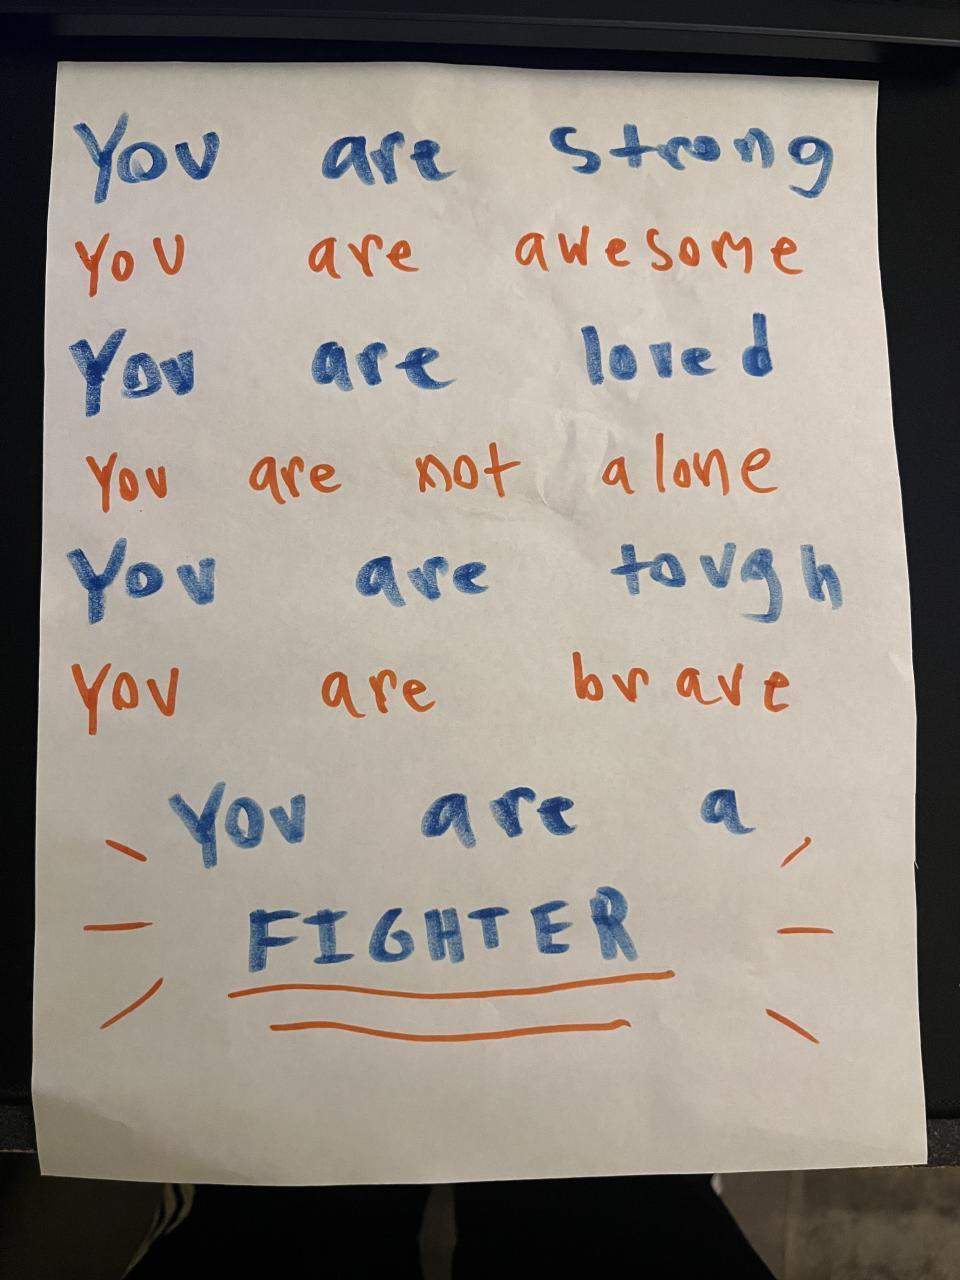 You are strong
You are awesome
You are loved
You are not alone
You are tough
You are brave
You are a
FIGHTER